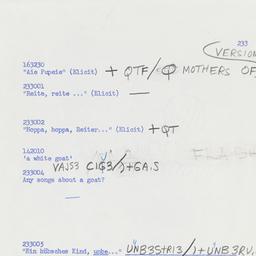 233
VERSION
163230
"Aie Pupeis" (Elicit) + QTF/ Q MOTHERS OF
233001
"Reite, reite ..." (Elicit) —
233002
"Hoppa, hoppa, Reiter..." (Elicit) + QT
142010
'a white goat'
VAJS3 CIG3/)+GA,S
233004
Any songs about a goat?
—
233005
"Ein hübsches Kind, unbe..." UNB3STRI3/)+UNB3RU,